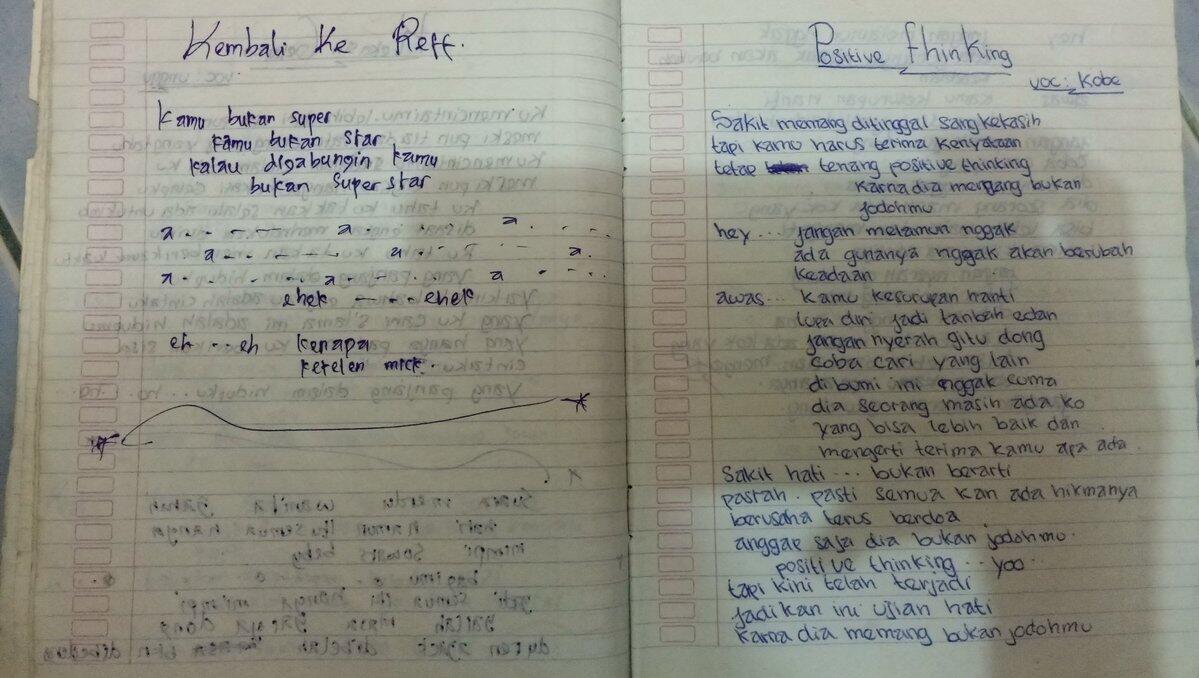 Kembali Ke Reff.
Kamu bukan super
kamu bukan star
kalau digabungin kamu
bukan superstar
a - - - - - a - . . . a . . . .
a - - - - - - a . . . a.
a - . . . - . a - . . . a . . . .
ehek - - - - ehek
eh . . eh kenapa
ketelen mick.
Positive thinking
voc : Kobe
Sakit memang ditinggal sang kekasih
tapi kamu harus terima kenyataan
tetap tenang positive thinking
karna dia memgang bukan
jodohmu
hey ... jangan melamun nggak
ada gunanya nggak akan berubah
keadaan
awas ... kamu kesurupan hanti
lupa diri jadi tanbah edan
jangan nyerah gitu dong
coba cari yang lain
di bumi ini nggak cuma
dia seorang masih ada ko
yang bisa lebih baik dan
mengerti terima kamu apa ada.
Sakit hati ... bukan berarti
pasrah. pasti semua kan ada hikmanya
berusaha terus berdoa
anggap saja dia bukan jodohmu.
positive thinking ... yoo
tapi kini telah terjadi
jadikan ini ujian hati
karna dia memang bukan jodohmu